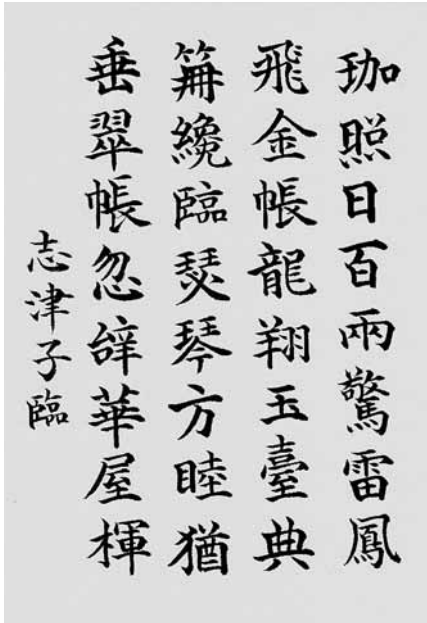 珈照日百兩驚雷鳳
飛金帳龍翔玉臺典
笧纔臨瑟琴方睦猶
垂翠帳忽辝華屋楎
志津子臨